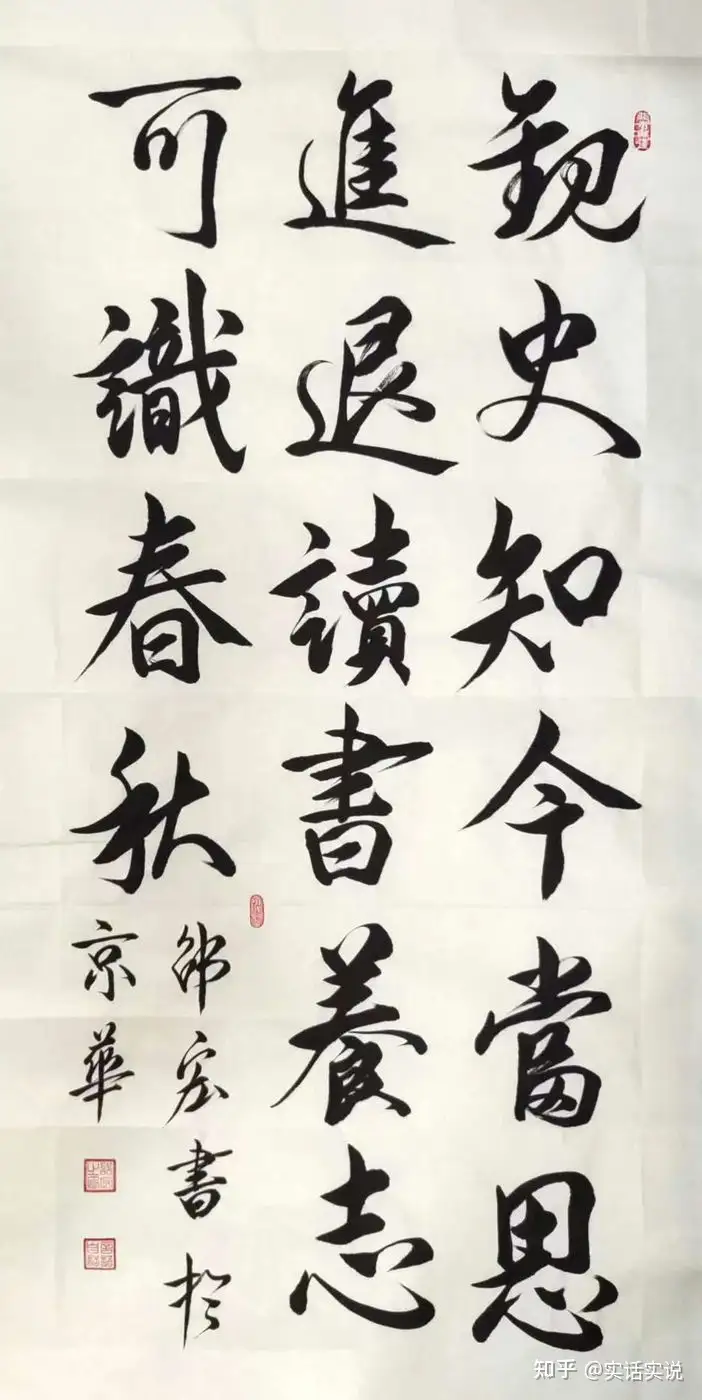 觀史知今當思
進退讀書養志
可識春秋
邵宏書於
京華
知乎 @实话实说